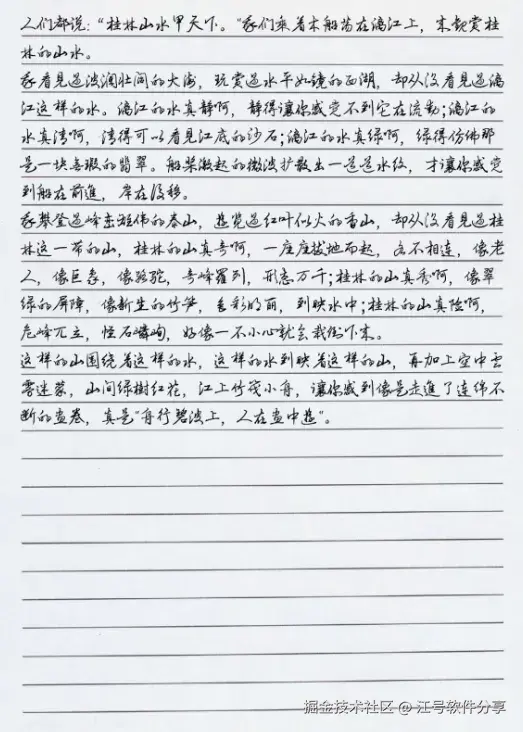 人们都说：“桂林山水甲天下。”我们乘着木船荡在漓江上，来观赏桂
林的山水。
我看见过波澜壮阔的大海，玩赏过水平如镜的西湖，却从没看见过漓
江这样的水。漓江的水真静啊，静得让你感觉不到它在流动；漓江的
水真清啊，清得可以看见江底的沙石；漓江的水真绿啊，绿得仿佛那
是一块无瑕的翡翠。船桨激起的微波扩散出一道道水纹，才让你感觉
到船在前進，岸在后移。
我攀登过峰峦雄伟的泰山，遊览过红叶似火的香山，却从没看見过桂
林这一带的山，桂林的山真奇啊，一座座拔地而起，各不相连，像老
人，像巨象，像骆驼，奇峰罗列，形态万千；桂林的山真秀啊，像翠
绿的屏障，像新生的竹笋，色彩明丽，倒映水中；桂林的山真险啊，
危峰兀立，怪石嶙峋，好像一不小心就会栽倒下来。
这样的山围绕着这样的水，这样的水倒映着这样的山，再加上空中云
雾迷蒙，山间绿樹红花，江上竹筏小舟，讓你感到像是走進了连绵不
断的画卷，真是“舟行碧波上，人在画中遊”。
掘金技术社区 @ 江号软件分享